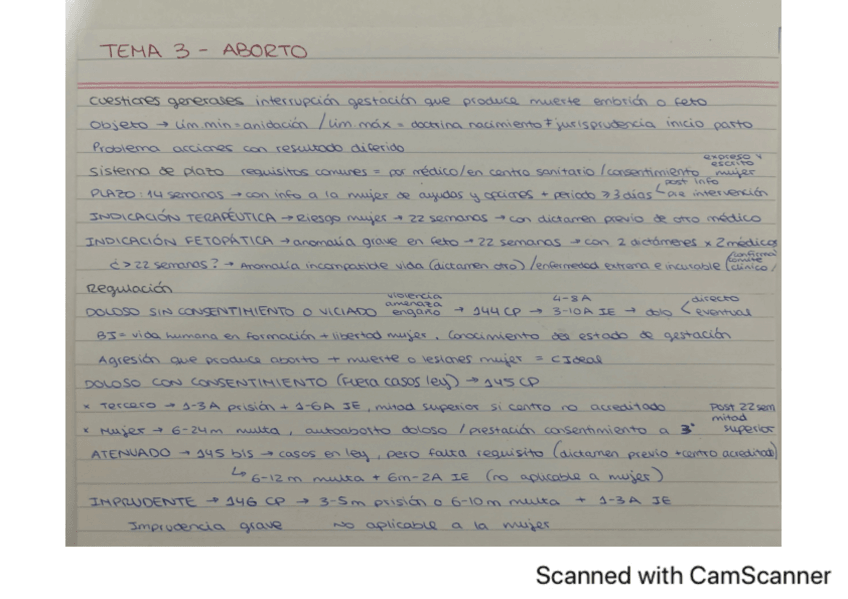 TEMA 3 - ABORTO
Cuestiones generales interrupción gestación que produce muerte embrión o feto
Objeto → Lím.mín = anidación / Lím.máx = doctrina nacimiento ≠ jurisprudencia inicio parto
Problema acciones con resultado diferido
Sistema de plazo requisitos comunes = por médico/en centro sanitario/consentimiento expreso y escrito mujer
PLAZO: 14 semanas → con info a la mujer de ayudas y opciones + periodo ≥ 3 días post info pre intervención
INDICACIÓN TERAPÉUTICA → Riesgo mujer → 22 semanas → con dictamen previo de otro médico
INDICACIÓN FETOPÁTICA → anomalía grave en feto → 22 semanas → con 2 dictámenes x 2 médicos
¿> 22 semanas? → Anomalía incompatible vida (dictamen otro) / enfermedad extrema e incurable (confirma comité clínico)
Regulación
DOLOSO SIN CONSENTIMIENTO O VICIADO violencia amenaza engaño → 144 CP → 4-8A 3-10A IE → dolo directo eventual
BJ = vida humana en formación + libertad mujer. Conocimiento del estado de gestación
Agresión que produce aborto + muerte o lesiones mujer = CIdeal
DOLOSO CON CONSENTIMIENTO (fuera casos ley) → 145 CP
x Tercero → 1-3A prisión + 1-6A IE, mitad superior si centro no acreditado
x Mujer → 6-24m multa, autoaborto doloso / prestación consentimiento a 3º Post 22 sem mitad superior
ATENUADO → 145 bis → casos en ley, pero falta requisito (dictamen previo + centro acreditado)
↳ 6-12m multa + 6m-2A IE (no aplicable a mujer)
IMPRUDENTE → 146 CP → 3-5m prisión o 6-10m multa + 1-3A IE
Imprudencia grave No aplicable a la mujer
Scanned with CamScanner